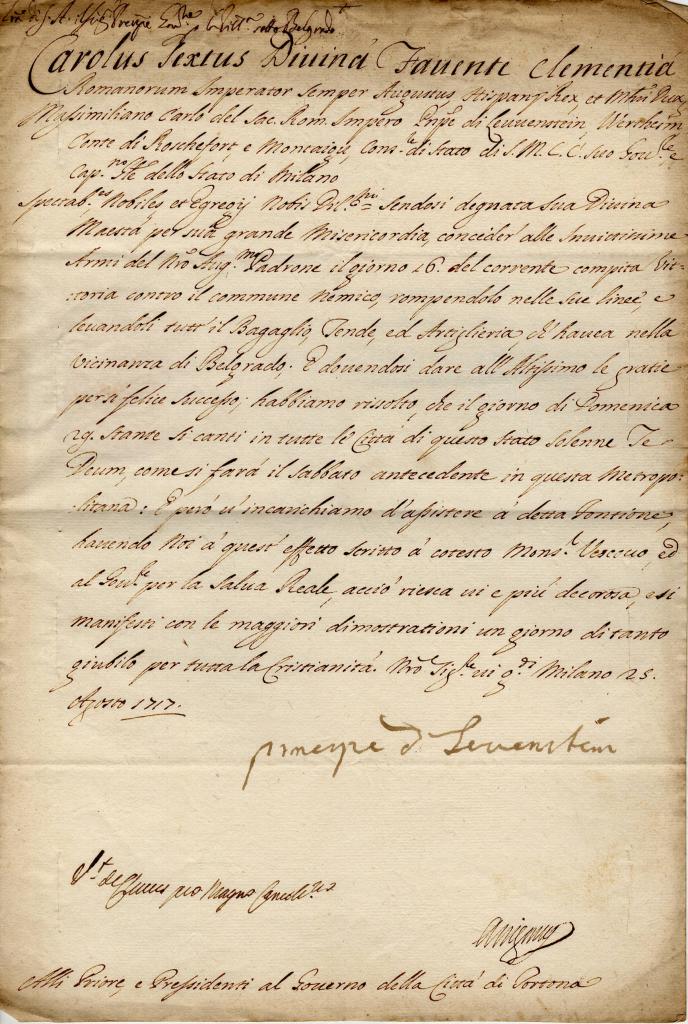 Carolus Sextus Divina Favente Clementiá
Romanorum Imperator Semper Augustus, Hispany Rex, et Mlni Dux
Massimiliano Carlo del Sac. Rom. Impero Pnpe di Levvenstein, Wertheim
Conte di Roschefort, e Montaigu, Cons.re di Stato di S. M. C. C. suo Gov.re, e
Cap.no Gle dello Stato di Milano
Spectab.es Nobiles et Egregij Nobis Dil.mi Sendosi degnata Sua Divina
Maestà per sua grande Misericordia, conceder' alle Invictissime
Armi del Nro Aug.mo Padrone il giorno 16. del corrente compita Vit-
:toria contro il commune Nemico, rompendolo nelle sue linee, e
levandoli tutt' il Bagaglio, Tende, ed Artiglieria ch' havea nella
vicinanza di Belgrado. E dovendosi dare all' Altissimo le gratie
per sì felice Successo; habbiamo rissolto, che il giorno di Domenica
29. stante si canti in tutte le Città di questo Stato Solenne Te-
Deum, come si farà il Sabbato antecedente in questa Metropo-
:litana: E però v' incarichiamo d'assistere à detta Fontione,
havendo Noi à quest' effetto scritto à cotesto Mons.r Vescovo, ed
al Gov.re per la Salva Reale, acciò riesca vi e più decorosa, e si
manifesti con le maggiori dimostrationi un giorno di tanto
giubilo per tutta la Cristianità. Nro Sig.re vi g.di Milano 25.
Agosto 1717.
principe d Levenstein
pro Magno Cancell.rio
Alli Priore, e Pressidenti al Governo della Città di Tortona